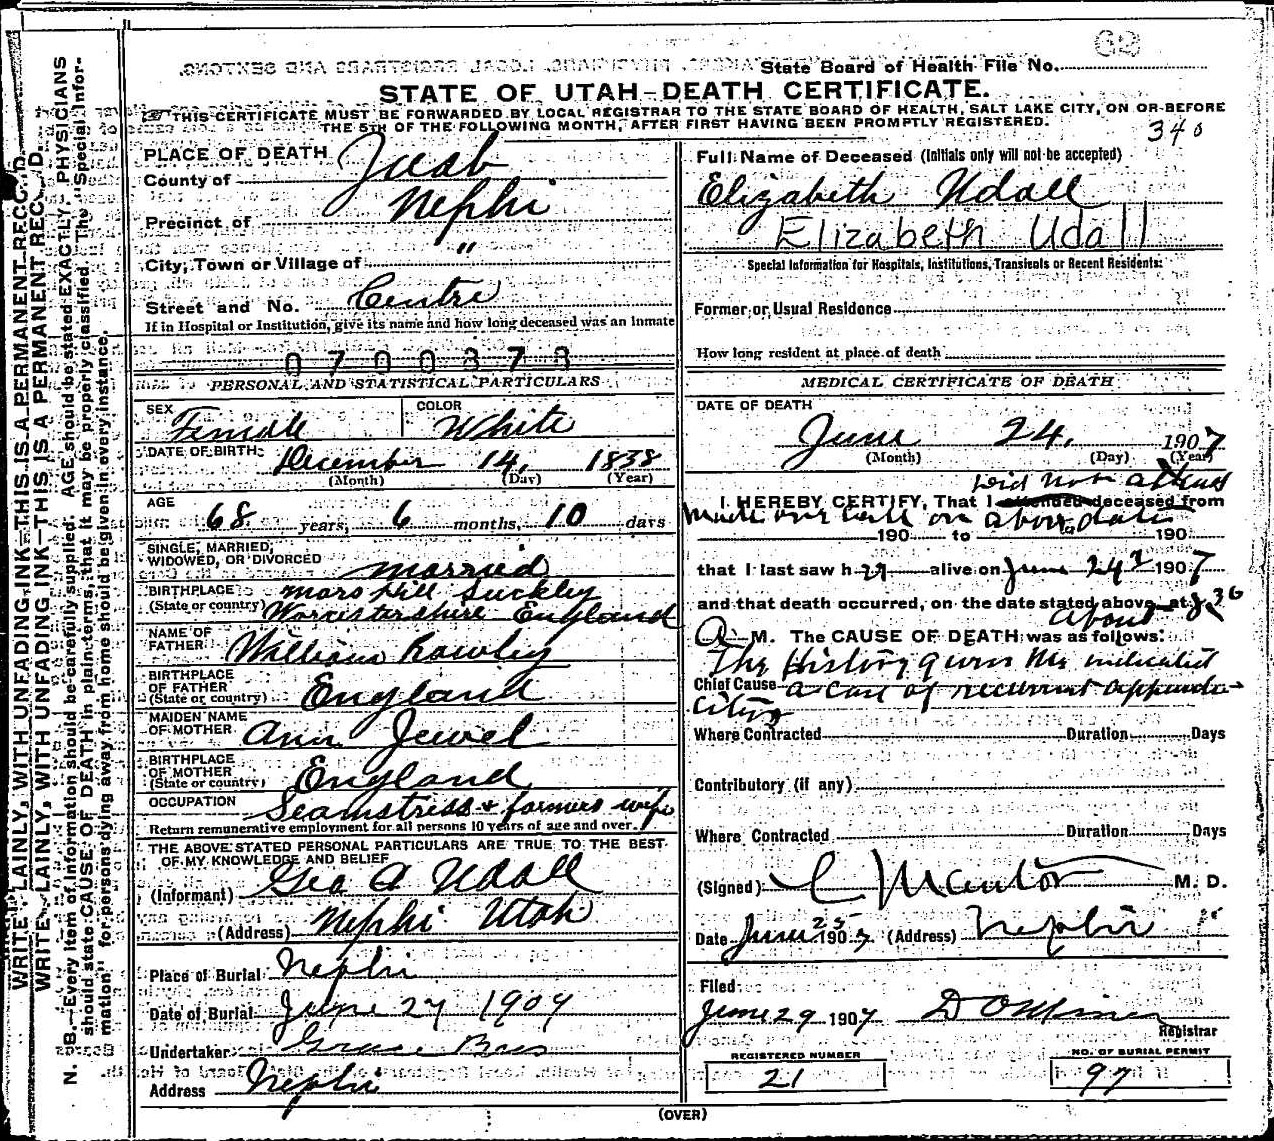 62
State Board of Health File No.
STATE OF UTAH—DEATH CERTIFICATE.
THIS CERTIFICATE MUST BE FORWARDED BY LOCAL REGISTRAR TO THE STATE BOARD OF HEALTH, SALT LAKE CITY, ON OR BEFORE
THE 5TH OF THE FOLLOWING MONTH, AFTER FIRST HAVING BEEN PROMPTLY REGISTERED.
340
WRITE PLAINLY, WITH UNFADING INK—THIS IS A PERMANENT RECORD.
WRITE PLAINLY, WITH UNFADING INK—THIS IS A PERMANENT RECORD.
N. B.—Every item of information should be carefully supplied. AGE should be stated EXACTLY. PHYSICIANS
should state CAUSE OF DEATH in plain terms, that it may be properly classified. The "Special Infor-
mation" for persons dying away from home should be given in every instance.
PLACE OF DEATH
County of Juab
Precinct of Nephi
City, Town or Village of "
Street and No. Centre
If in Hospital or Institution, give its name and how long deceased was an inmate
0700373
PERSONAL AND STATISTICAL PARTICULARS
SEX Female COLOR White
DATE OF BIRTH: December 14, 1838
(Month) (Day) (Year)
AGE 68 years, 6 months, 10 days
SINGLE, MARRIED,
WIDOWED, OR DIVORCED married
BIRTHPLACE Mars Hill Suckley
(State or country) Worcestershire England
NAME OF
FATHER William Rowley
BIRTHPLACE
OF FATHER
(State or country) England
MAIDEN NAME
OF MOTHER Ann Jewel
BIRTHPLACE
OF MOTHER
(State or country) England
OCCUPATION Seamstress + farmers wife
Return remunerative employment for all persons 10 years of age and over.
THE ABOVE STATED PERSONAL PARTICULARS ARE TRUE TO THE BEST
OF MY KNOWLEDGE AND BELIEF
(Informant) Geo A Udall
(Address) Nephi Utah
Place of Burial Nephi
Date of Burial June 27 1907
Undertaker Bros
Address Nephi
Full Name of Deceased (Initials only will not be accepted)
Elizabeth Udall
Elizabeth Udall
Special Information for Hospitals, Institutions, Transients or Recent Residents:
Former or Usual Residence
How long resident at place of death
MEDICAL CERTIFICATE OF DEATH
DATE OF DEATH
June 24, 1907
(Month) (Day) (Year)
did not attend
I HEREBY CERTIFY, That I attended deceased from
made one call on above date
190 to 190
that I last saw her alive on June 24 1907
and that death occurred, on the date stated above, at 8 30
about
A M. The CAUSE OF DEATH was as follows:
The History given me indicated
Chief Cause a case of recurrent appendi-
citis
Where Contracted Duration Days
Contributory (if any)
Where Contracted Duration Days
(Signed) M. D.
Date June 25 1907 (Address) Nephi
Filed
June 29 1907 D O Miner
Registrar
REGISTERED NUMBER
21
NO. OF BURIAL PERMIT
97
(OVER)